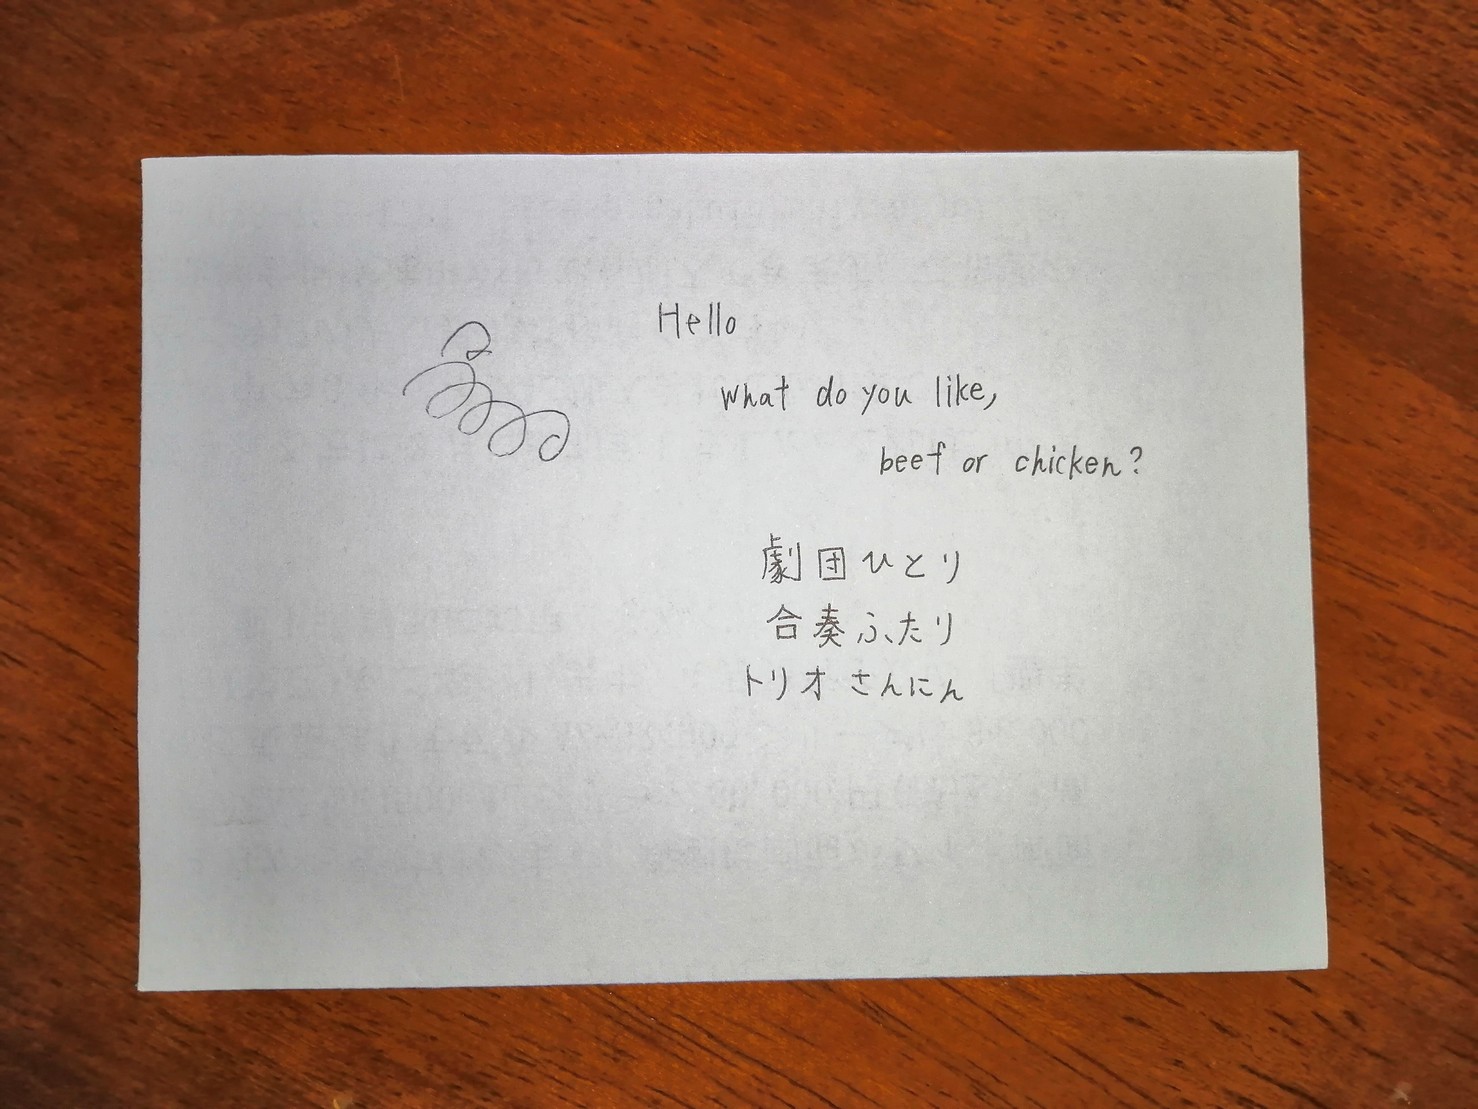 Hello
what do you like,
beef or chicken?
劇団ひとり
合奏ふたり
トリオさんにん